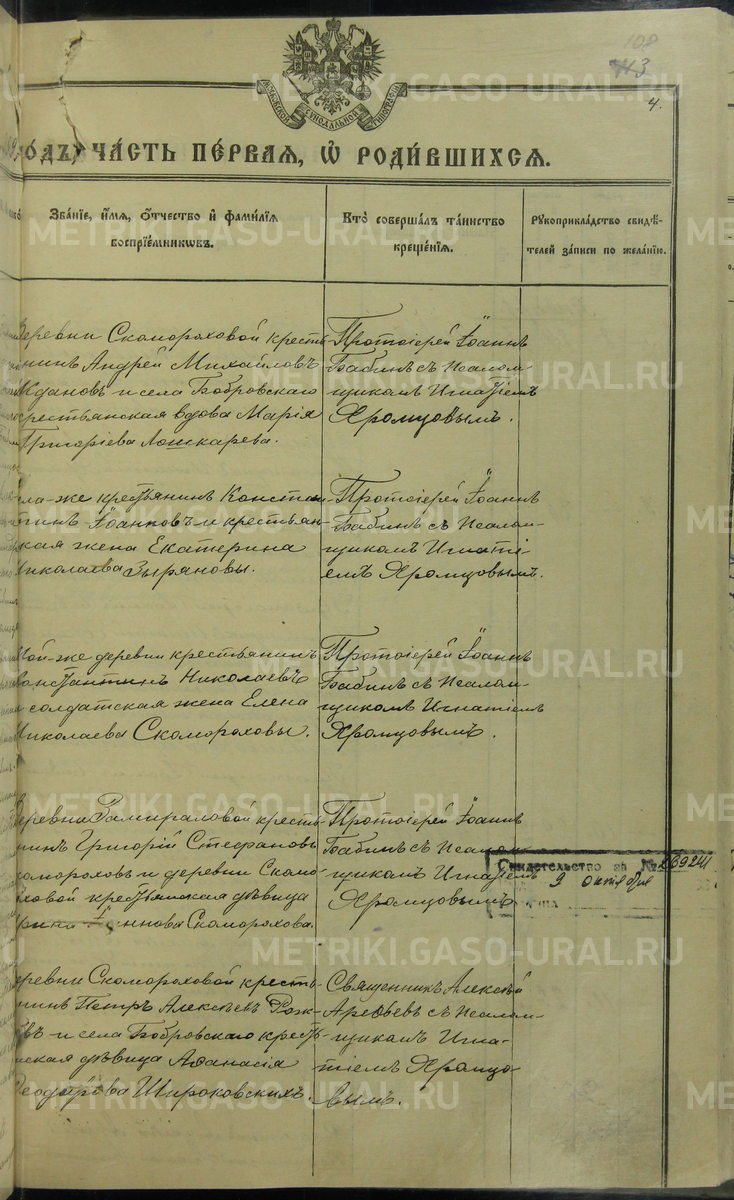 113
4.
МОСКОВСКОЙ СѴНОДАЛЬНОЙ ТИПОГРАФІИ
одъ, ча́сть пе́рвая, ѽ роди́вшихся.
Зва́ніе, и́мя, о́тчество и҆ фами́лія
воспріе́мниковъ.
Кто̀ соверша́лъ та́инство
креще́нія.
Рукоприкла́дство свидѣ́-
телей за́писи по жела́нію.
Деревни Скомороховой кресть-
янинъ Андрей Михайловъ
Ждановъ и села Бобровскаго
крестьянская вдова Марія
Григоріева Лошкарева.
Протоіерей Іоаннъ
Бабинъ съ псалом-
щикомъ Игнатіемъ
Хромцовымъ.
села-же крестьянинъ Констан-
тинъ Іоанновъ и крестьян-
ская жена Екатерина
Николаева Зыряновы.
Протоіерей Іоаннъ
Бабинъ съ псалом-
щикомъ Игнаті-
емъ Хромцовымъ.
той-же деревни крестьянинъ
Константинъ Николаевъ
и солдатская жена Елена
Николаева Скомороховы.
Протоіерей Іоаннъ
Бабинъ съ псалом-
щикомъ Игнатіемъ
Хромцовымъ.
Деревни Замираловой кресть-
янинъ Григорій Стефановъ
Скомороховъ и деревни Скомо-
роховой крестьянская дѣвица
Іоаннова Скоморохова.
Протоіерей Іоаннъ
Бабинъ съ псалом-
щикомъ Игнатіемъ
Хромцовымъ
Свидетельство за № 269241
9 октября
Деревни Скомороховой кресть-
янинъ Петръ Алексѣевъ Рож-
и села Бобровскаго кресть-
янская дѣвица Аѳанасія
Ѳеодорова Широковскихъ.
Священникъ Алексѣй
Арефьевъ съ псалом-
щикомъ Игна-
тіемъ Хромцо-
вымъ.
METRIKI.GASO-URAL.RU